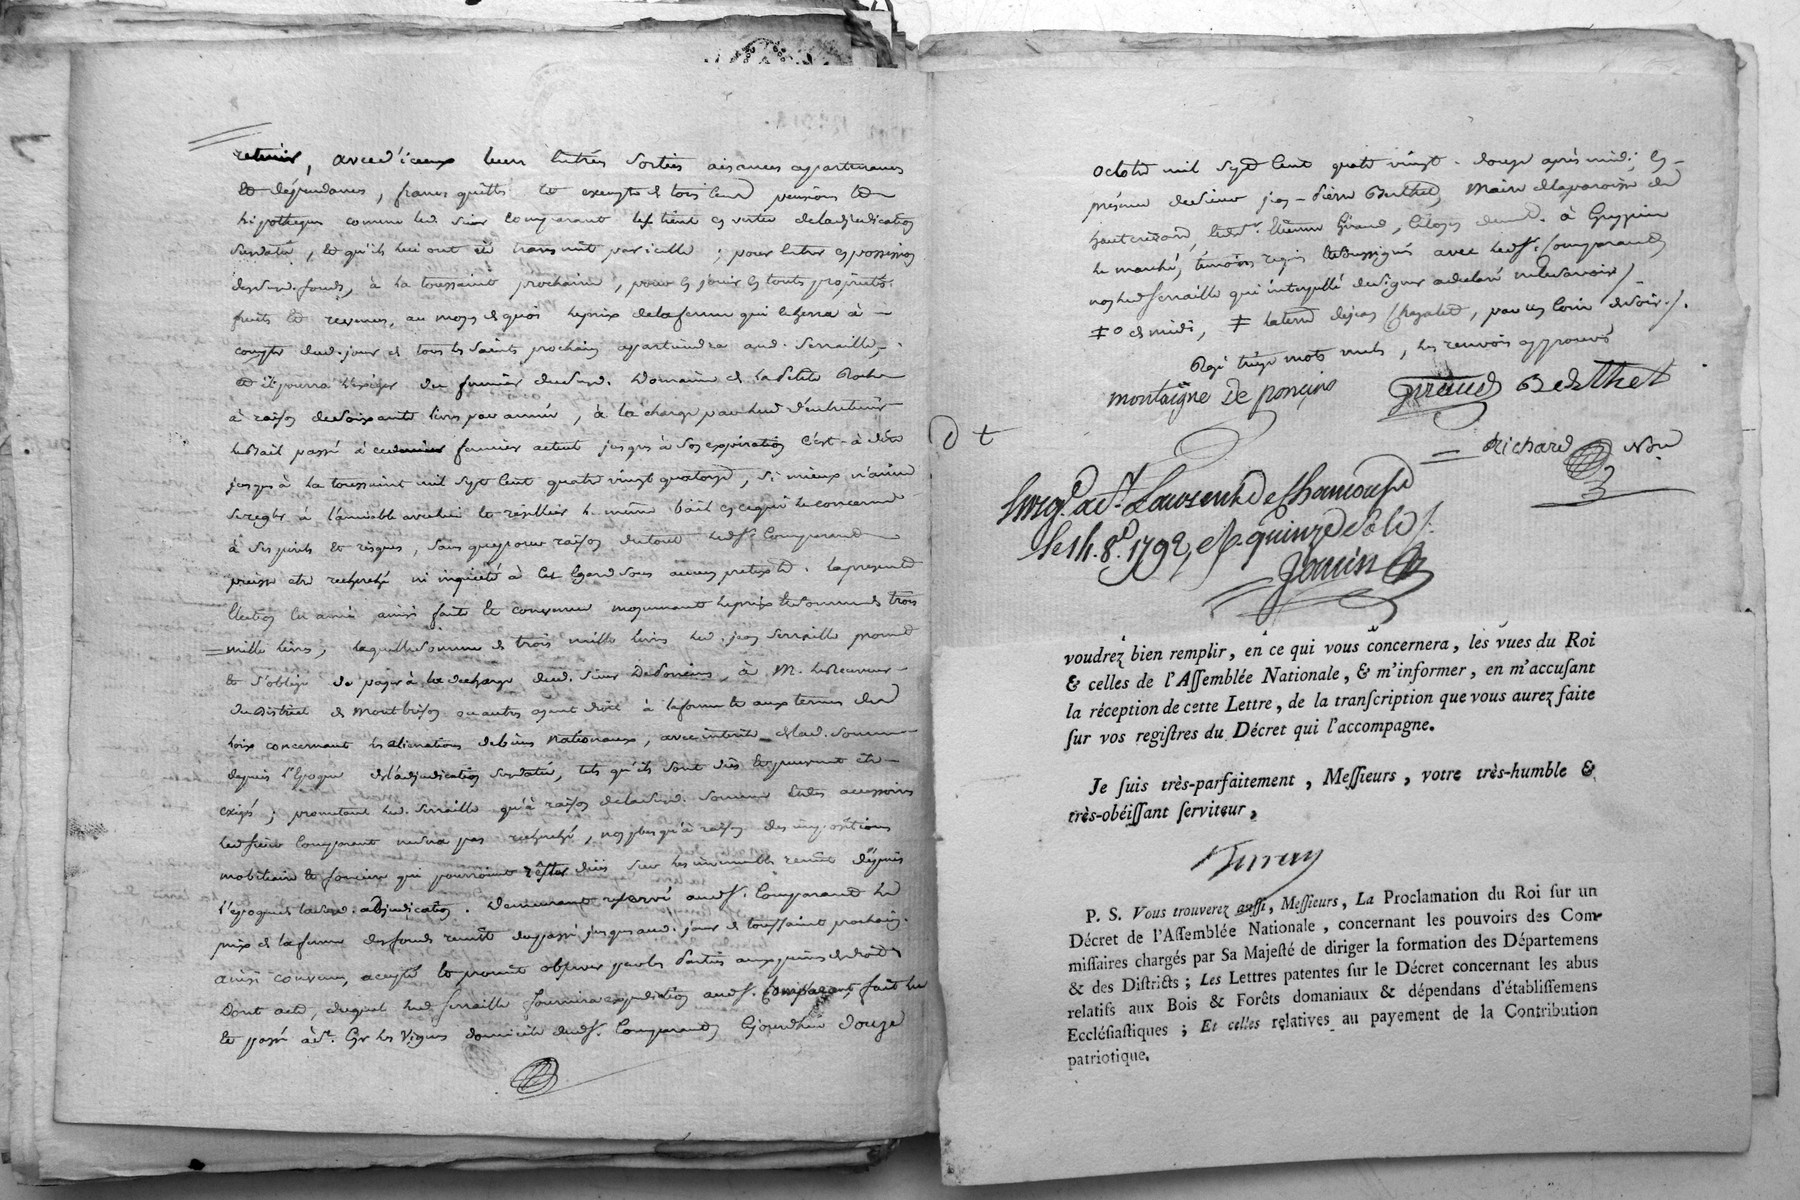 retenir, avec d'iceux leurs entrées sorties aisances appartenances
et dépendances, francs quittes et exempts de tous cens pensions et
hipotheques comme led. sieur comparant les tient en vertu de l'adjudication
susdatée, et qu'ils lui ont été transmit par icelle ; pour entrer en possession
desdsusd. fonds, à la toussaint prochaine, pour en jouir en toute propriété
fruits et revenus, au moyen de quoi le prix de la ferme qui echerra à
compter dud. jour de tous les Saints prochain appartiendra aud. Serraille,
et il pourra l'exiger du fermier dud. susd. Domaine de la petite Roche
à raison de soixante livres par année, à la charge par lui d'entretenir
le Bail passé à ce dernier fermier actuel jusques à son expiration c'est-à-dire
jusques à la toussaint mil sept cent quatre vingt quatorze, si mieux n'aime
se regler à l'amiable avec lui et résilier le même bail en ce qui le concerne
à ses perils et risques, sans que pour raison du tout led. Sr. Comparant
puisse etre recherché ni inquiété à cet égard sous aucun pretexte. La presente
Election en ami ainsi faite et convenue moyennant le prix et somme de trois
mille livres, laquelle somme de trois mille livres led. jean Serraille promet
et s'oblige de payer à la décharge dud. sieur De Poncins, à M. le Receveur
du District de Montbrison ou autres ayant droit à la forme et aux termes des
loix concernant les alienations des biens nationaux, avec interets de lad. somme
depuis l'Epoque de l'adjudication susdatée, tels qu'ils sont dûs et peuvent etre
exigés ; promettant led. Serraille qu'à raison de la susd. somme et des accessoires
led sieur Comparant ne sera pas recherché, non plus qu'à raison des impositions
mobiliaire et fonciere qui pourroient rester dües sur les immeubles remis depuis
l'epoque de la susd. adjudication. Demeurant reservé aud. Sr. Comparant le
prix de la ferme des fonds remis du passé jusques aud. jour de toussaint prochain.
ainsi convenu, accepté et promis observer par les Parties aux peines de droit
Dont acte, duquel led Serraille fournira expedition aud. Sr. Comparant, fait lu
et passé à St. Cyr les Vignes domicile dud. Sr. Comparant Cejourdhui douze
octobre mil sept cent quatre vingt. douze après midi ; en
presence de sieur jean-Pierre Berthet, Maire de la paroisse de
haut rivoire, et de sr. Etienne Giraud, Citoyen demt. à Grezieu
le marché, témoins requis et soussignés avec led. Sr. Comparant,
non led. Serraille qui interpellé de signer a déclaré ne le savoir /
‡° de midi, ‡ , par un coin de soir ./.
Rayé treize mots nuls, les renvois approuvés
montaigne De poncins Giraud Berthet
= Richard Nre
D t
Enreg.é à St. Laurent de Chamousset
le 14. 8.e 1792, R. quinze sols /.
Janin
voudrez bien remplir, en ce qui vous concernera, les vues du Roi
& celles de l'Aſſemblée Nationale, & m'informer, en m'accuſant
la réception de cette Lettre, de la tranſcription que vous aurez faite
ſur vos regiſtres du Décret qui l'accompagne.
Je ſuis très-parfaitement, Meſſieurs, votre très-humble &
très-obéiſſant ſerviteur,
P. S. Vous trouverez auſſi, Meſſieurs, La Proclamation du Roi ſur un
Décret de l'Aſſemblée Nationale, concernant les pouvoirs des Com-
miſſaires chargés par Sa Majeſté de diriger la formation des Départemens
& des Diſtricts ; Les Lettres patentes ſur le Décret concernant les abus
relatifs aux Bois & Forêts domaniaux & dépendans d'établiſſemens
Eccléſiaſtiques ; Et celles relatives au payement de la Contribution
patriotique.